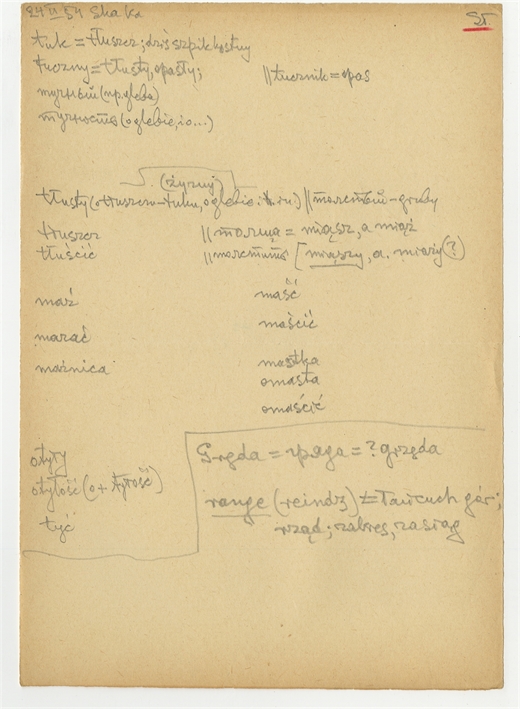 24 II 54 Shaka
ST
tuk = tłuszcz; dziś szpik kostny
tuczny = tłusty, opasły; // tucznik = opas
тучный (np. gleba)
тучность (o glebie, i o...)
(żyzny)
tłusty (o tłuszczu - tuku, o glebie i t. in.) // толстый - gruby
tłuszcz // толща = miąsz, a miąż
tłuścić // толстить [miąższy, a. miazy (?)
maź maść
maścić
mazać
maźnica mastka
omasta
omaścić
otyły
otyłość (o + tyłość)
tyć
Gręda = гряда = ? grzęda
range (reindż) = łańcuch gór;
rząd; zakres, zasiąg